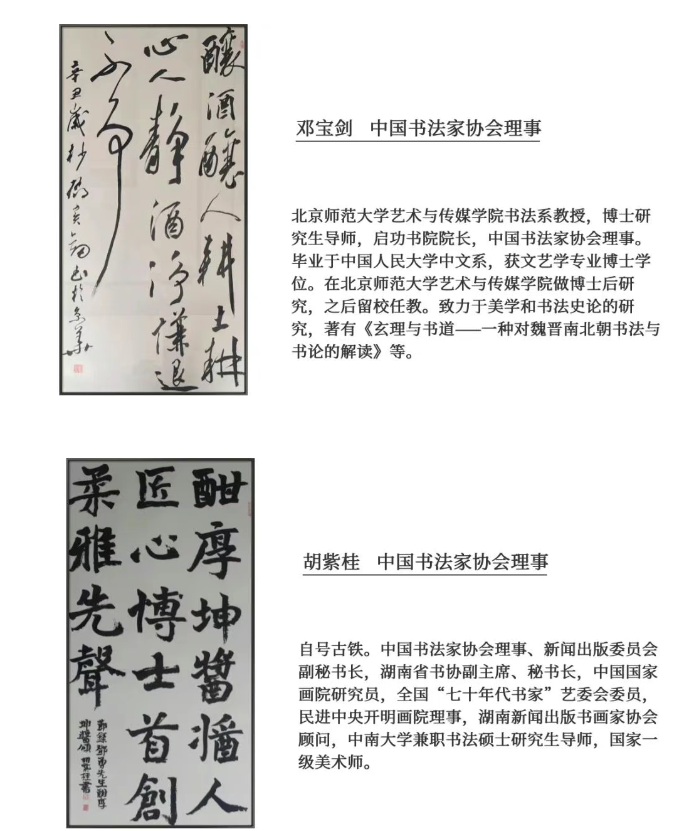 釀酒釀人耕土耕
心人靜酒淨謙退
不争
辛丑歲杪鄧寶劍書於京華
邓宝剑 中国书法家协会理事
北京师范大学艺术与传媒学院书法系教授，博士研
究生导师，启功书院院长，中国书法家协会理事。
毕业于中国人民大学中文系，获文艺学专业博士学
位。在北京师范大学艺术与传媒学院做博士后研
究，之后留校任教。致力于美学和书法史论的研
究，著有《玄理与书道——一种对魏晋南北朝书法与
书论的解读》等。
酣厚坤醬人
匠心博士首創
柔雅先聲
節錄鄧勇先生酣厚
坤醬頌 紫桂書
胡紫桂 中国书法家协会理事
自号古铁。中国书法家协会理事、新闻出版委员会
副秘书长，湖南省书协副主席、秘书长，中国国家
画院研究员，全国“七十年代书家”艺委会委员，
民进中央开明画院理事，湖南新闻出版书画家协会
顾问，中南大学兼职书法硕士研究生导师，国家一
级美术师。